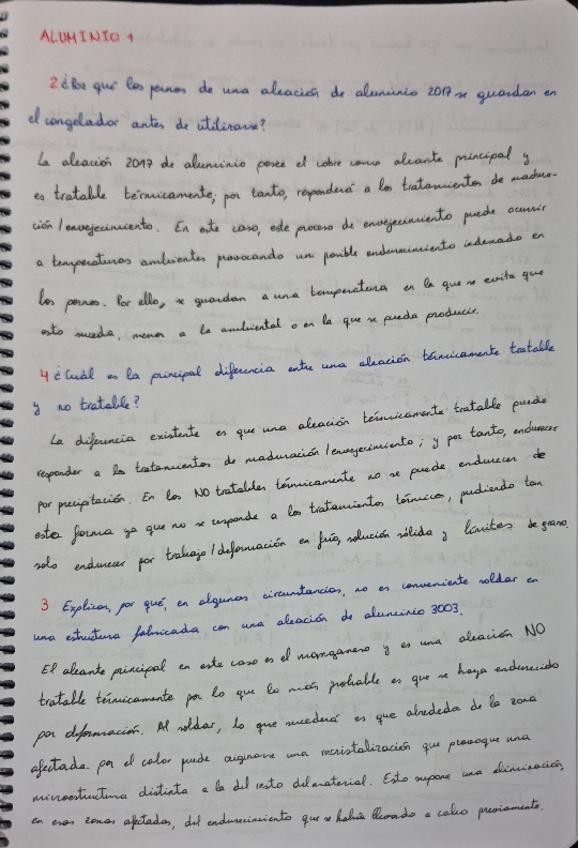 ALUMINIO 1
2 ¿Por qué los pernos de una aleación de aluminio 2017 se guardan en
el congelador antes de utilizarse?
La aleación 2017 de aluminio posee el cobre como aleante principal y
es tratable térmicamente; por tanto, responderá a los tratamientos de madura-
ción/envejecimiento. En este caso, este proceso de envejecimiento puede ocurrir
a temperaturas ambientes provocando un posible endurecimiento indeseado en
los pernos. Por ello, se guardan a una temperatura en la que se evita que
esto suceda, menor a la ambiental o en la que se pueda producir.
4 ¿Cuál es la principal diferencia entre una aleación térmicamente tratable
y no tratable?
La diferencia existente es que una aleación térmicamente tratable puede
responder a los tratamientos de maduración/envejecimiento; y por tanto, endurecer
por precipitación. En los NO tratables térmicamente no se puede endurecer de
esta forma ya que no se responde a los tratamientos térmicos, pudiendo tan
solo endurecer por trabajo/deformación en frío, solución sólida y límites de grano.
3 Explicar, por qué, en algunas circunstancias, no es conveniente soldar en
una estructura fabricada con una aleación de aluminio 3003.
El aleante principal en este caso es el manganeso y es una aleación NO
tratable térmicamente por lo que lo más probable es que se haya endurecido
por deformación. Al soldar, lo que sucederá es que alrededor de la zona
afectada por el calor puede originarse una recristalización que provoque una
microestructura distinta a la del resto del material. Esto supone una eliminación,
en esas zonas afectadas, del endurecimiento que se había llevado a cabo previamente.